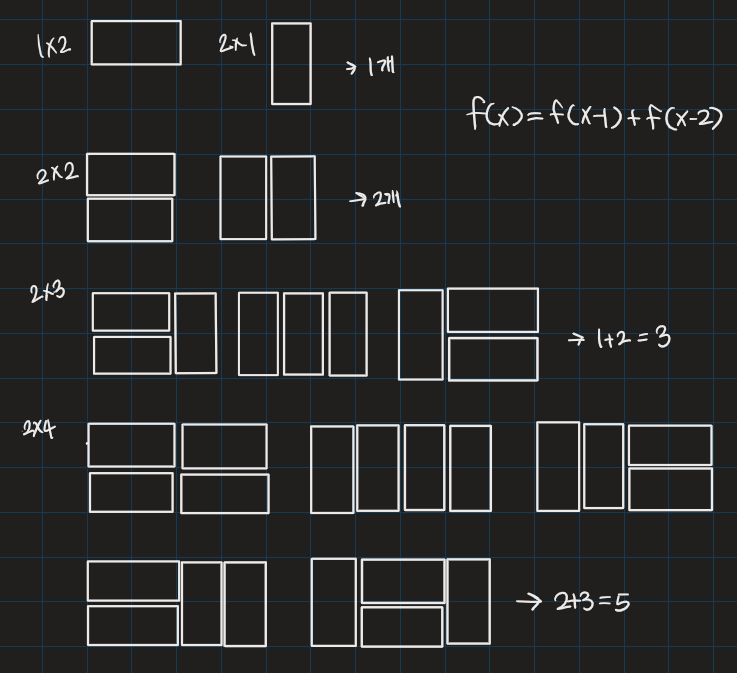 1x2 2x1 → 1개
f(x)=f(x-1)+f(x-2)
2x2 → 2개
2x3 → 1+2=3
2x4
→ 2+3=5